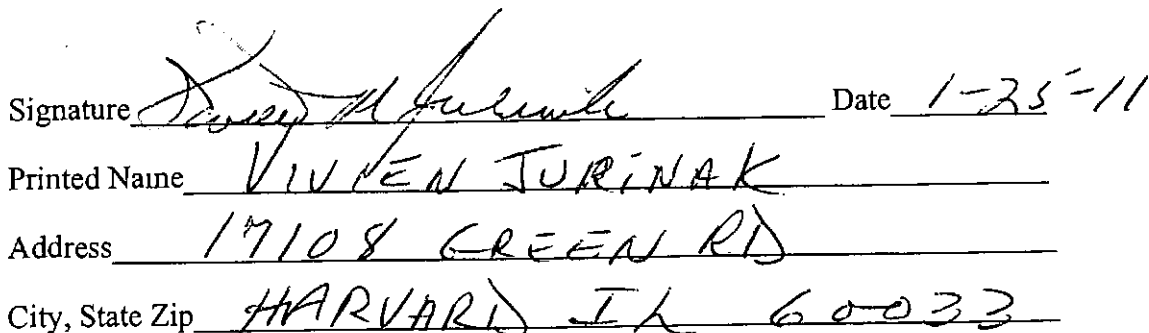 Signature Date 1-25-11
Printed Name VIVIEN JURINAK
Address 17108 GREEN RD
City, State Zip HARVARD IL 60033